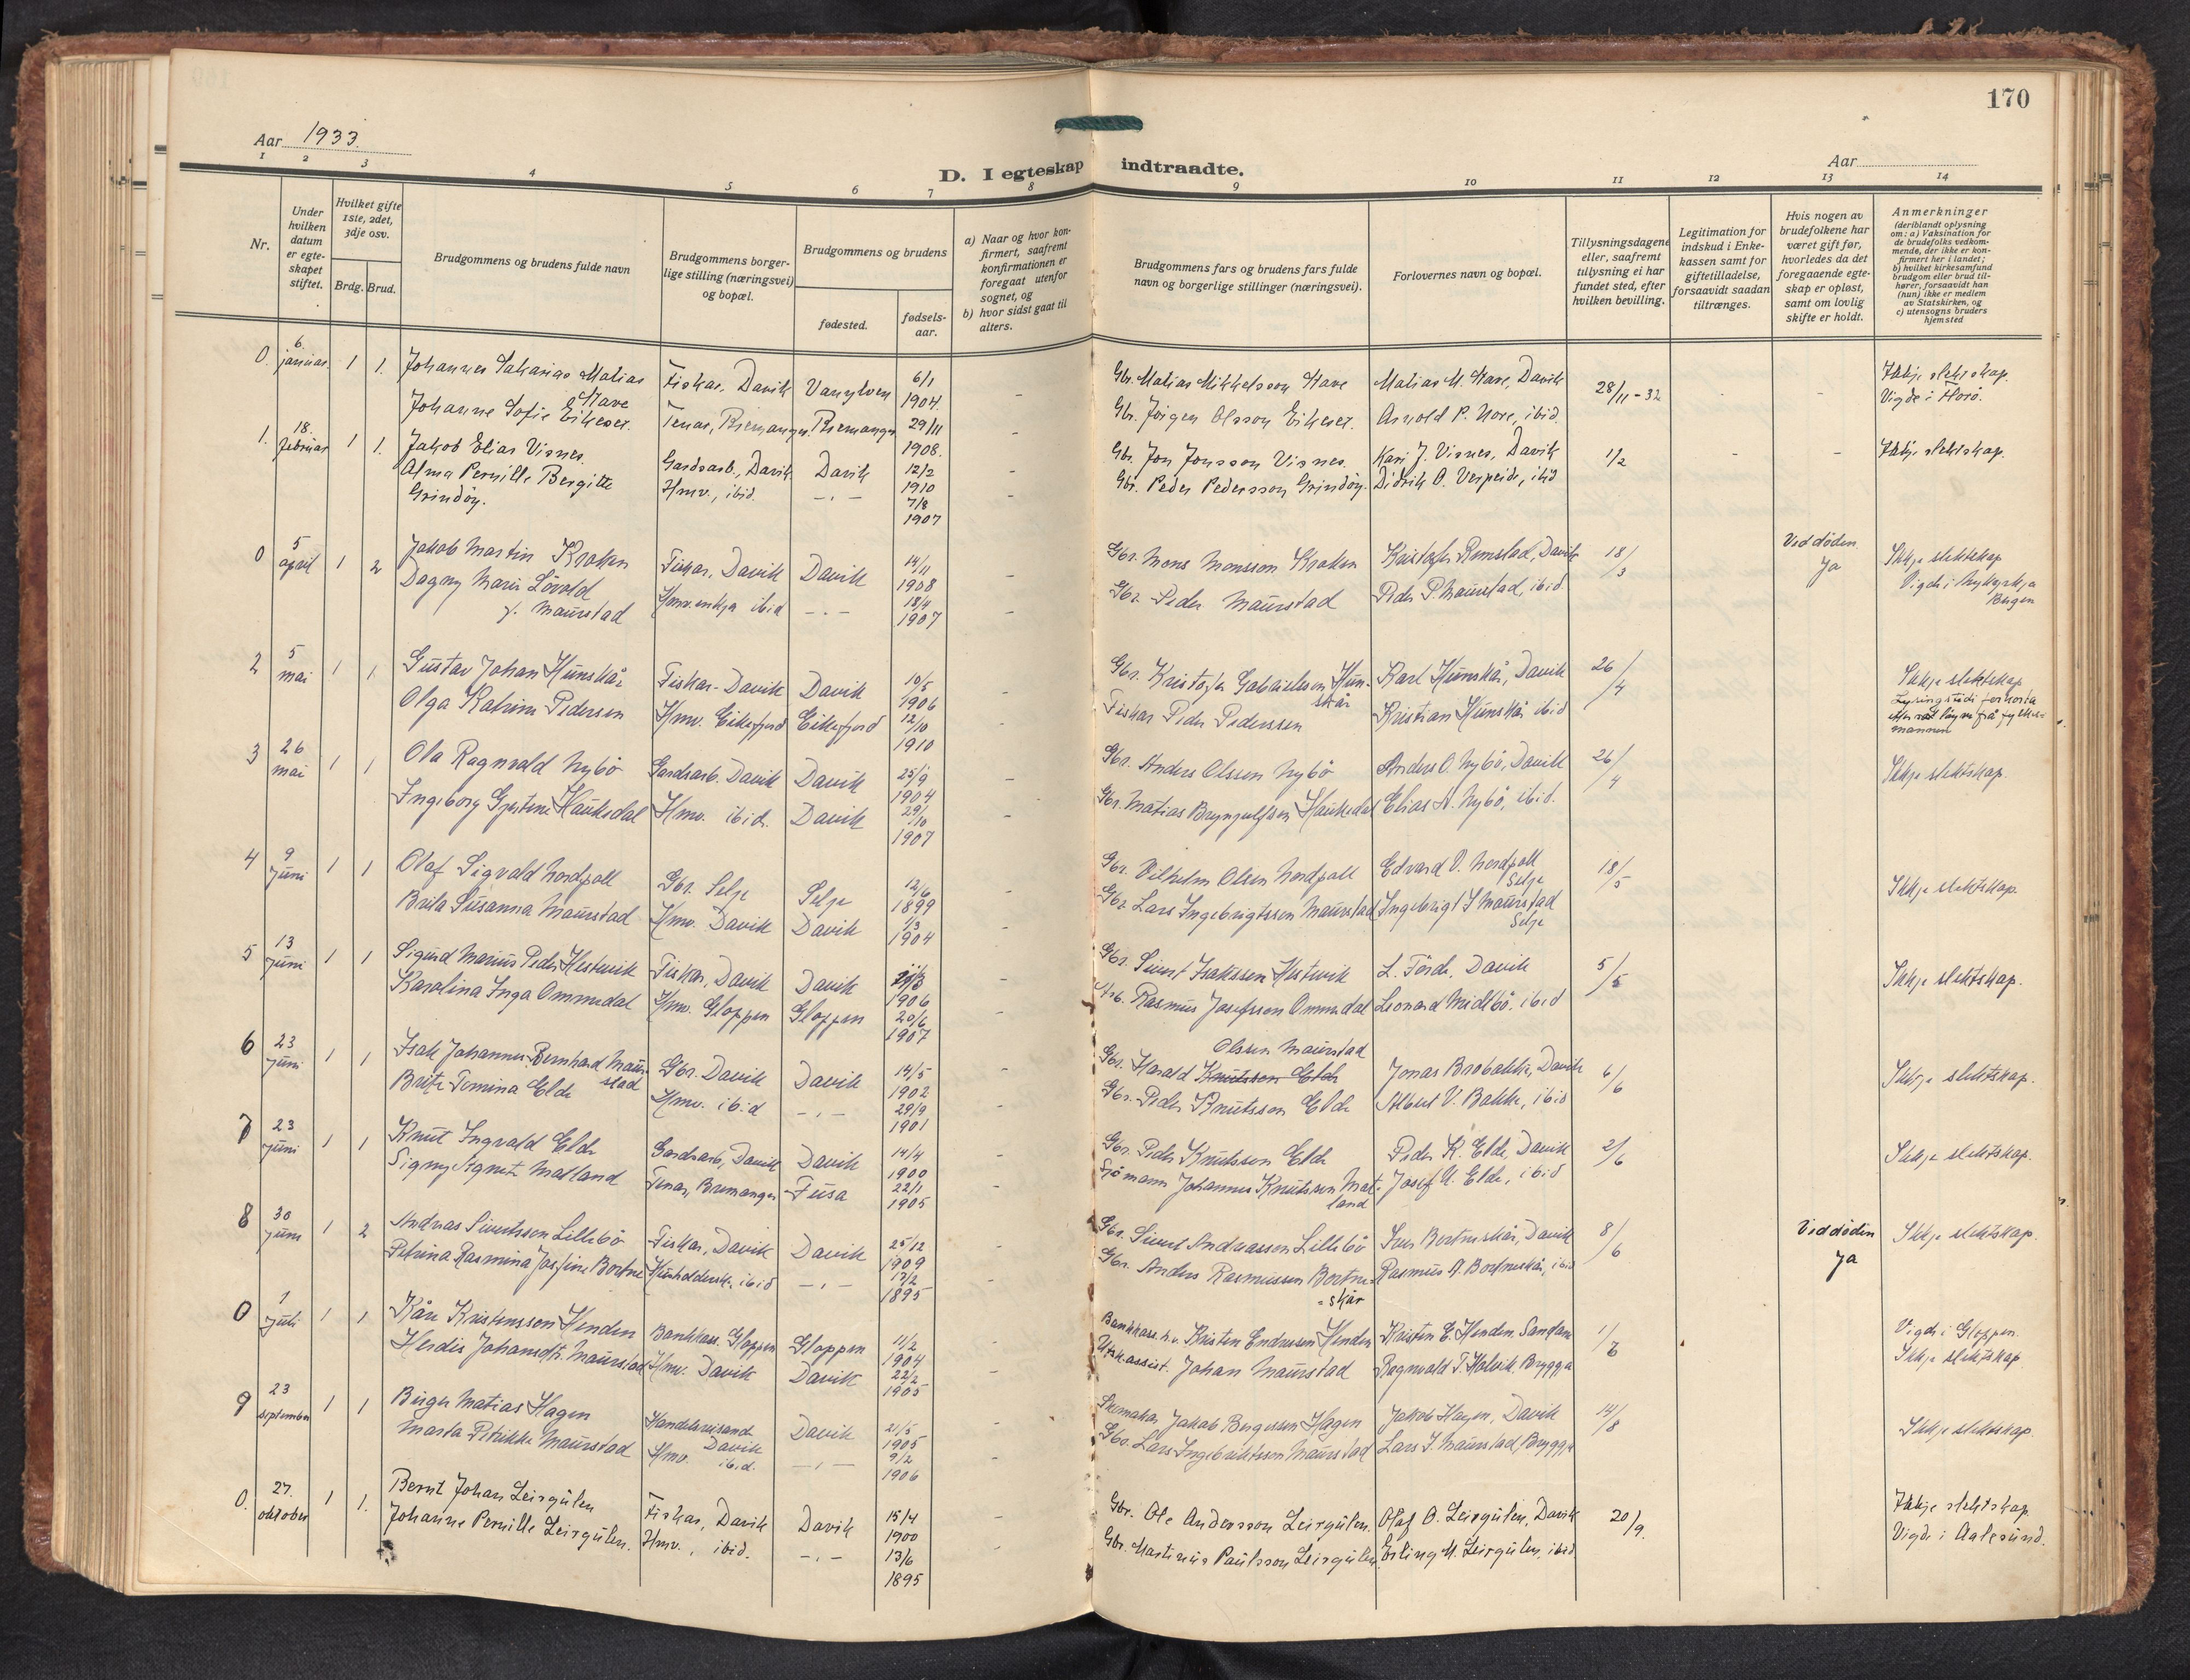 170
Aar 1933.
D. I egteskap indtraadte.
Aar
1 2 3 4 5 6 7 8 9 10 11 12 13 14
Nr.
Under hvilken datum er egteskapet stiftet.
Hvilket gifte 1ste, 2det, 3dje osv.
Brdg. Brud.
Brudgommens og brudens fulde navn
Brudgommens borgerlige stilling (næringsvei) og bopæl.
Brudgommens og brudens
fødested.
fødselsaar.
a) Naar og hvor konfirmert, saafremt konfirmationen er foregaat utenfor sognet, og
b) hvor sidst gaat til alters.
Brudgommens fars og brudens fars fulde navn og borgerlige stillinger (næringsvei).
Forlovernes navn og bopæl.
Tillysningsdagene eller, saafremt tillysning ei har fundet sted, efter hvilken bevilling.
Legitimation for indskud i Enkekassen samt for giftetilladelse, forsaavidt saadan tiltrænges.
Hvis nogen av brudefolkene har været gift før, hvorledes da det foregaaende egteskap er opløst, samt om lovlig skifte er holdt.
Anmerkninger (deriblandt oplysning om: a) Vaksination for de brudefolks vedkommende, der ikke er konfirmert her i landet; b) hvilket kirkesamfund brudgom eller brud tilhører, forsaavidt han (hun) ikke er medlem av Statskirken, og c) utensogns bruders hjemsted
0. 6. januar. 1 1. Johannes Sakarias Matias Stave Fiskar, Davik Vanylven 6/1 1904. - Gbr. Matias Mikkelsson Stave Matias M. Stave, Davik 28/11-32 - - Ikkje slektskap.
Johanne Sofie Eikeset. Tenar, Bremanger. Bremanger 29/11 1908. - Gbr. Jörgen Olsson Eikeset. Arnold P. Nore, ibid. Vigde i Florö.
1. 18. februar 1 1. Jakob Elias Visnes. Gardsarb., Davik Davik 12/2 1910 - Gbr. Jon Jonsson Visnes. Kari J. Visnes, Davik 1/2 - - Ikkje slektskap.
Alma Pernille Bergitte Grindöy. Hmv., ibid. -"- 7/8 1907 - Gbr. Peder Pedersson Grindöy. Didrik O. Verpeide, ibid
0 5 april 1 2 Jakob Martin Kraken Fiskar, Davik Davik 14/11 1908 - Gbr. Mons Monsson Kraken Kristofer Rimstad, Davik 18/3 Ved döden Ja Ikkje slektskap
Dagny Marie Lövold f. Maurstad Hmv. enkja ibid -"- 18/4 1907 - Gbr. Peder Maurstad Peder P. Maurstad, ibid. Vigde i Nykyrkja Bergen
2 5 mai 1 1 Gustav Johan Hunskår Fiskar - Davik Davik 10/5 1906 - Gbr. Kristofer Gabrielsson Hunskår Karl Hunskår, Davik 26/4 Ikkje slektskap
Olga Katrine Pedersen Hmv. Eikefjord Eikefjord 12/10 1910 - Fiskar Peder Pederssen Kristian Hunskår ibid Lysingstidi forkorta etter löyve frå fylkesmannen
3 26 mai 1 1 Ola Ragnvald Nybö Gardsarb. Davik Davik 25/9 1904 - Gbr. Anders Olssen Nybö Anders O. Nybö, Davik 26/4 Ikkje slektskap.
Ingeborg Gjertine Hauksdal Hmv. ibid. Davik 29/10 1907 - Gbr. Matias Brynjulfsen Hauksdal Elias A. Nybö, ibid.
4 9 juni 1 1 Olaf Sigvald Nordpoll Gbr. Selje Selje 12/6 1899 - Gbr. Vilhelm Olsen Nordpoll Edvard V. Nordpoll Selje 18/5 Ikkje slektskap.
Brita Susanna Maurstad Hmv. Davik Davik 1/3 1904 - Gbr Lars Ingebrigtssen Maurstad Ingebrigt I Maurstad Selje
5 13 juni 1 1 Sigurd Marius Peder Hestvik Fiskar, Davik Davik 1906 - Gbr. Sivert Isakssen Hestevik L. Förde, Davik 5/5 Ikkje slektskap.
Karolina Inga Ommedal Hmv. Gloppen Gloppen 20/6 1907 - Arb. Rasmus Josefsson Ommedal Leonard Midtbö, ibid
6 23 juni 1 1 Isak Johannes Bernhard Maurstad Gbr. Davik Davik 14/5 1902 - Gbr. Harald Knutsson Elde Olssen Maurstad Jonas Brobakke, Davik 6/6 Ikkje slektskap.
Brite Tomina Elde Hmv. ibid -"- 29/9 1901 - Gbr. Peder Knutsson Elde Albert V. Bakke, ibid
7 23 juni 1 1 Knut Ingvald Elde Gardsarb., Davik Davik 14/4 1900 - Gbr. Peder Knutsson Elde Peder K. Elde, Davik 2/6 Ikkje slektskap.
Signy Agnet Matland Tenar, Bremanger Fusa 22/1 1905 - Sjömann Johannes Knutssen Matland Josef A. Elde, ibid
8 30 juni 1 2 Andreas Sivertsson Lillebö Fiskar, Davik Davik 25/12 1909 - Gbr. Sivert Andreassen Lillebö Iver Bortneskår, Davik 8/6 Ved döden Ja Ikkje slektskap.
Petrina Rasmina Josefine Bortne Husholdersk. ibid -"- 17/2 1895 - Gbr. Anders Rasmussen Bortne=skår Rasmus A. Bortneskår, ibid
0 1 juli 1 1 Kåre Kristenssen Henden Bankkass. Gloppen Gloppen 11/2 1904 - Bankkass. h.v. Kristen Endresen Henden Kristen E. Henden, Sandane 1/6 Vigde i Gloppen.
Herdis Johansdtr. Maurstad Hmv. Davik Davik 22/2 1905 - Utsk.assist. Johan Maurstad Ragnvald T. Holvik Bryggja Ikkje slektskap
9 23 september 1 1 Birger Matias Hagen Handelsreisand Davik Davik 21/5 1905 - Skomakar Jakob Bergessen Hagen Jakob Hagen, Davik 14/8 Ikkje slektskap.
Marta Petrikke Maurstad Hmv. ibid. -"- 9/2 1906 - Gbr. Lars Ingebriktssen Maurstad Lars I. Maurstad, Bryggja
0. 27. oktober 1 1. Bernt Johan Leirgulen Fiskar, Davik Davik 15/4 1900 - Gbr. Ole Andersson Leirgulen. Olaf O. Leirgulen, Davik 20/9. Ikkje slektskap.
Johanne Pernille Leirgulen. Hmv., ibid. -"- 13/6 1895 - Gbr. Martinus Paulsson Leirgulen Erling M. Leirgulen, ibid Vigde i Aalesund.